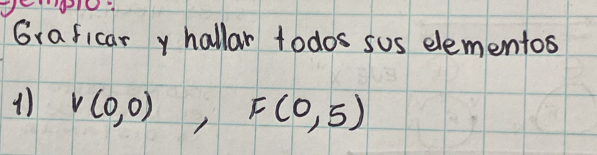 Ejemplo:
Graficar y hallar todos sus elementos
1) V(0,0) , F(0,5)